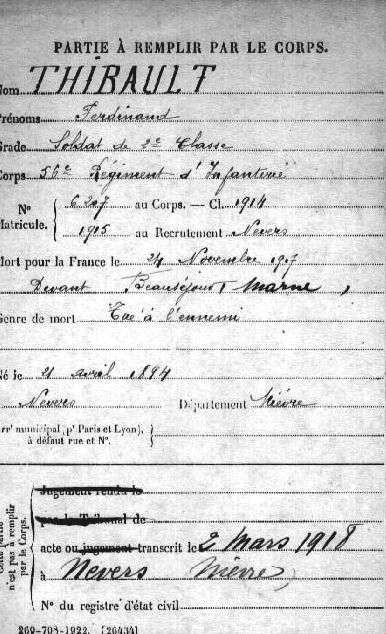 PARTIE À REMPLIR PAR LE CORPS.
Nom THIBAULT
Prénoms Ferdinand
Grade Soldat de 2e Classe
Corps 56e Régiment d'Infanterie
N° Matricule. { 6207 au Corps. — Cl. 1914
1905 au Recrutement Nevers
Mort pour la France le 24 Novembre 1917
Devant Beauséjour, Marne,
Genre de mort Tué à l'ennemi
Né le 21 avril 1894
Nevers Département Nièvre
Arrt municipal (pr Paris et Lyon),
à défaut rue et N°.
Cette partie n'est pas à remplir par le Corps.
Jugement rendu le
par le Tribunal de
acte ou jugement transcrit le 2 Mars 1918
à Nevers Nièvre,
N° du registre d'état civil
269-708-1922. [26434]